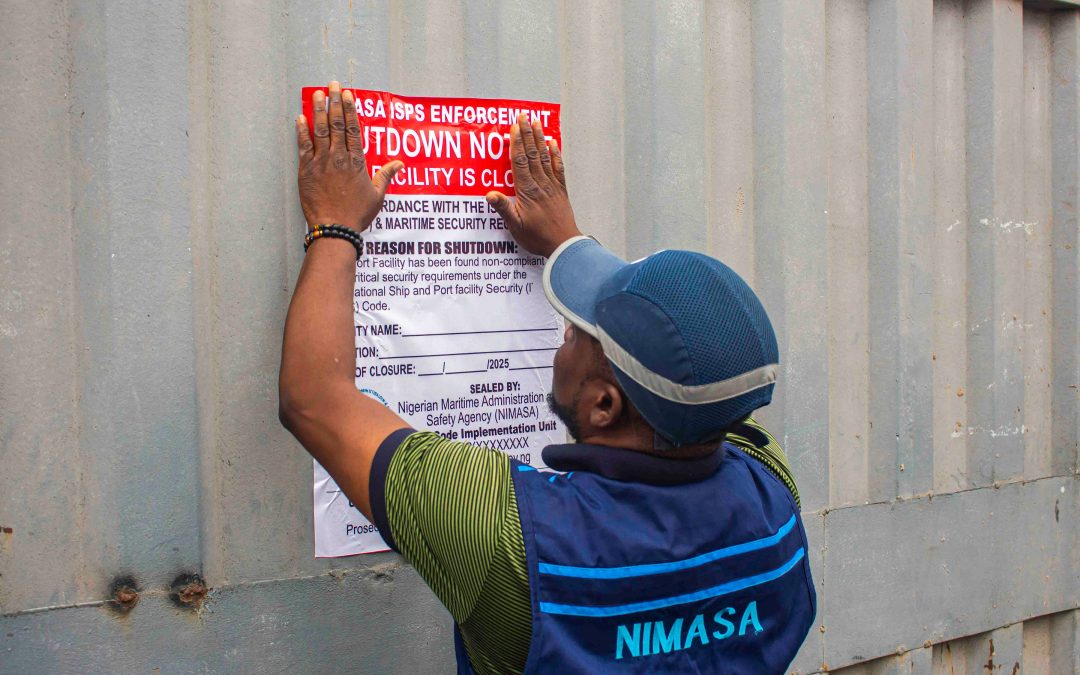 ASA ISPS ENFORCEMENT
UTDOWN NOT E
FACILITY IS CLO
RDANCE WITH THE IS
& MARITIME SECURITY REG
REASON FOR SHUTDOWN:
ort Facility has been found non-compliant
ritical security requirements under the
ational Ship and Port facility Security (I
) Code.
TY NAME:
TION:
OF CLOSURE: ___/___/2025
SEALED BY:
Nigerian Maritime Administration a
Safety Agency (NIMASA)
Code Implementation Unit
/XXXXXXXX
ov.ng
Prosec
NIMASA